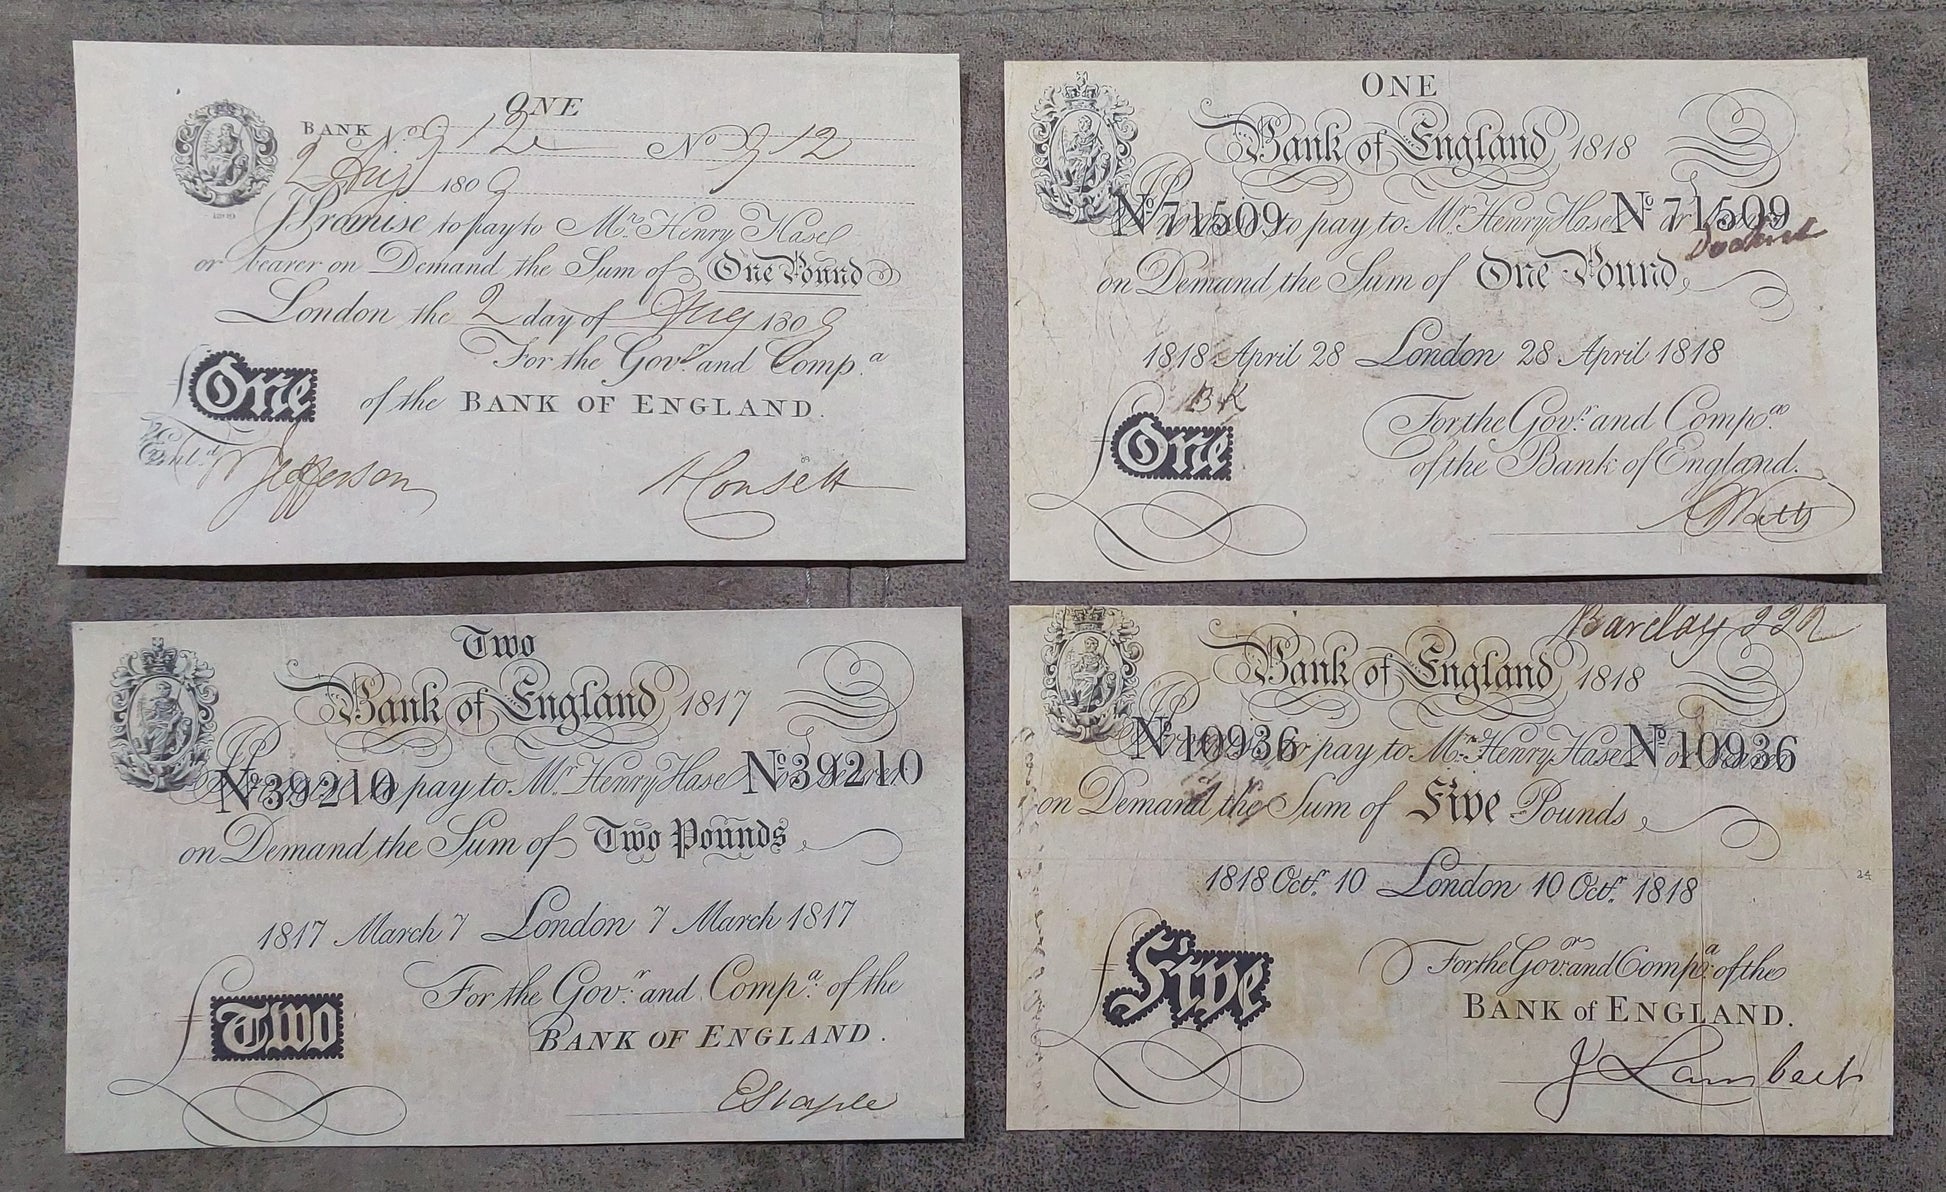 ONE
BANK No 912 No 912
2 Aug 1809
I Promise to pay to Mr. Henry Hase
or bearer on Demand the Sum of One Pound
London the 2 day of Aug 1809
For the Govr. and Compa.
£One of the BANK OF ENGLAND.
Entd. W Jefferson
ONE
Bank of England 1818
No 71509 to pay to Mr. Henry Hase No 71509
on Demand the Sum of One Pound
1818 April 28 London 28 April 1818
BK
For the Govr. and Compa.
£One of the Bank of England.
Two
Bank of England 1817
No 39210 pay to Mr. Henry Hase No 39210
on Demand the Sum of Two Pounds
1817 March 7 London 7 March 1817
For the Govr. and Compa. of the
£Two BANK OF ENGLAND.
Barclay
Bank of England 1818
No 10936 to pay to Mr. Henry Hase No 10936
on Demand the Sum of Five Pounds
24
1818 Octr. 10 London 10 Octr. 1818
For the Govr. and Compa. of the
£Five BANK of ENGLAND.
J Lambert